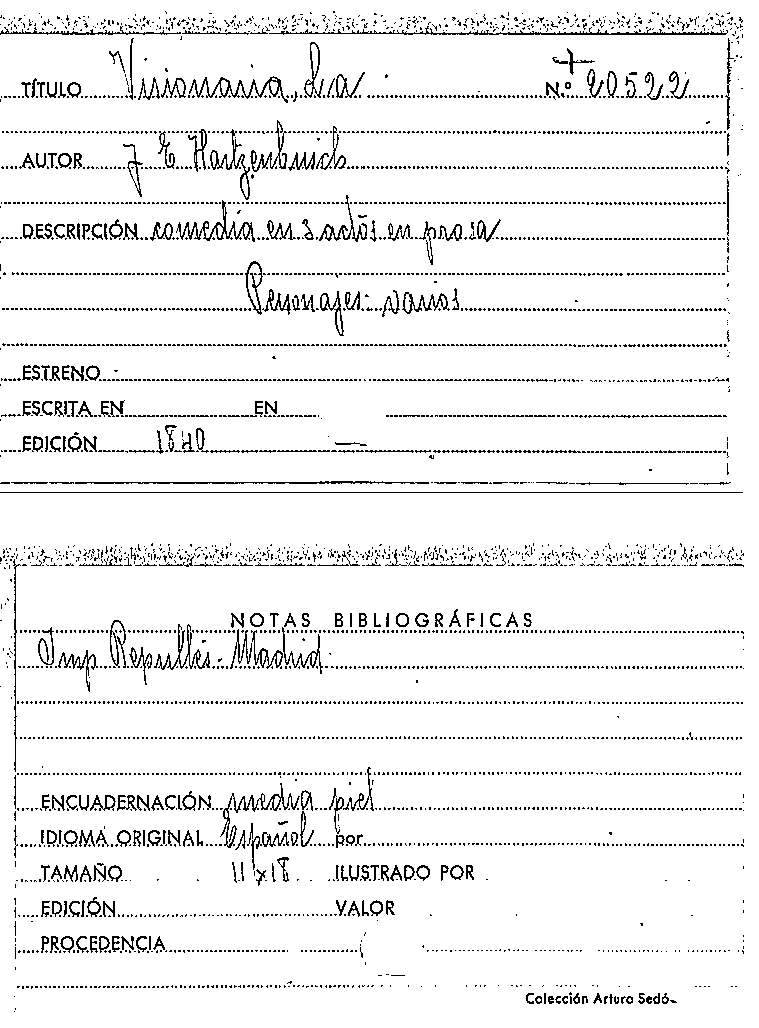 TÍTULO Visionaria, La N.º 20522
AUTOR J E Hartzenbusch
DESCRIPCIÓN comedia en 3 actos en prosa
Personajes: varios
ESTRENO
ESCRITA EN EN
EDICIÓN 1840 —
NOTAS BIBLIOGRÁFICAS
Imp Repullés. Madrid
ENCUADERNACIÓN media piel
IDIOMA ORIGINAL Español por
TAMAÑO 11x18 ILUSTRADO POR
EDICIÓN VALOR
PROCEDENCIA
Colección Arturo Sedó